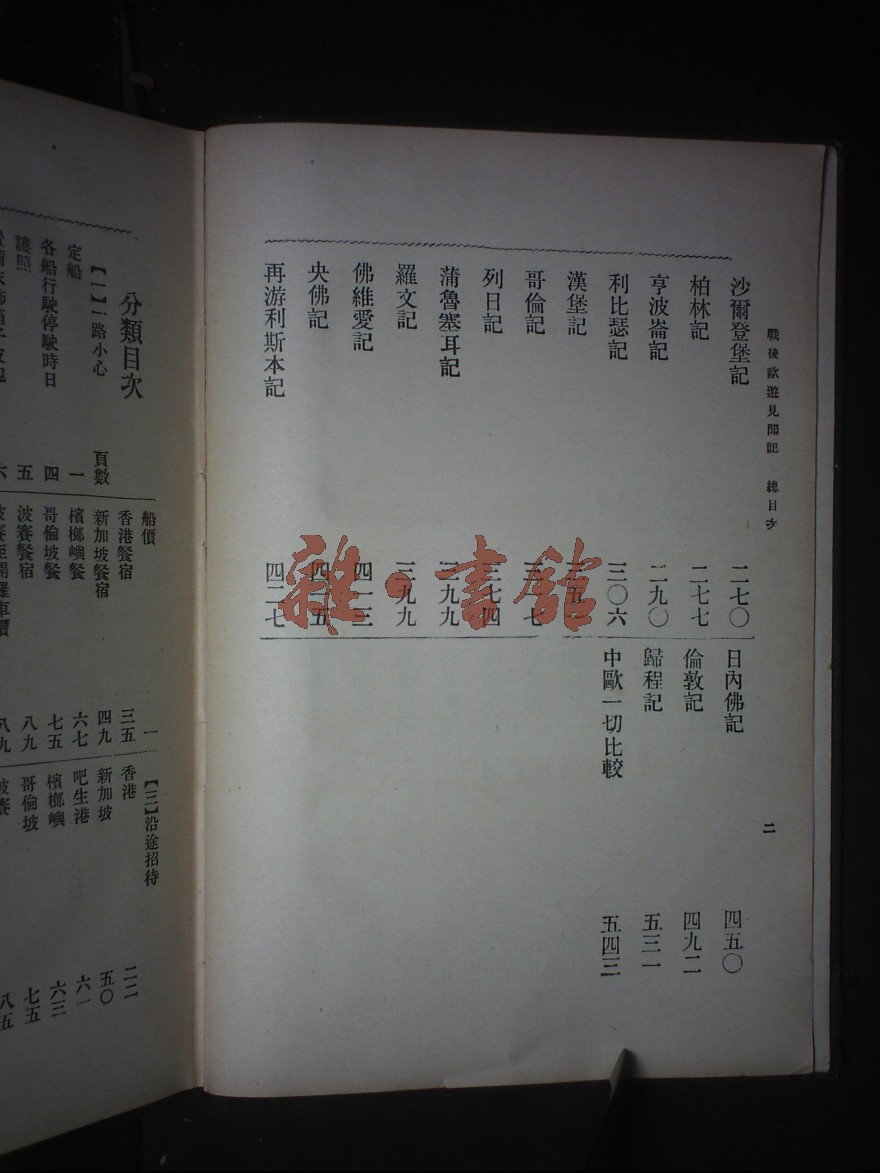 戰後歐遊見聞記 總目次 二
沙爾登堡記 二七〇
柏林記 二七七
亨波崙記 二九〇
利比瑟記 三〇六
漢堡記
哥倫記
列日記 三七四
蒲魯塞耳記
羅文記 三九九
佛維愛記 四一三
央佛記
再游利斯本記 四二七
日內佛記 四五〇
倫敦記 四九二
歸程記 五三一
中歐一切比較 五四三
雜·書館
分類目次
【一】一路小心 頁數
定船 一
各船行駛停駛時日 四
護照 五
六
船價 一
香港餐宿 三五
新加坡餐宿 四九
檳榔嶼餐 六七
哥倫坡餐 七五
波賽餐宿 八九
波賽至開羅車價 八九
【三】沿途招待
香港 二二
新加坡 五〇
吧生港 六一
檳榔嶼 六三
哥倫坡 七五
波賽 八五